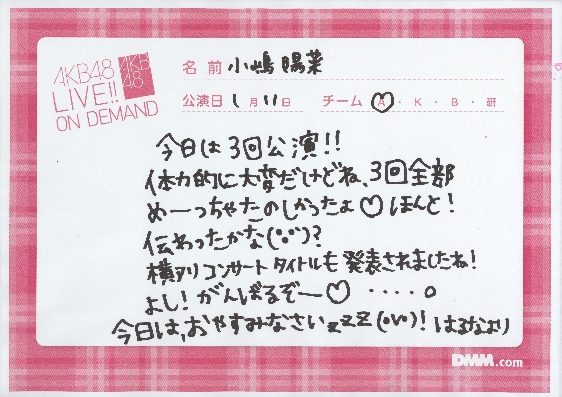 AKB48
LIVE!!
ON DEMAND
AKB
48
名前 小嶋陽菜
公演日 1月11日 チーム A・K・B・研
今日は3回公演!!
体力的に大変だけどね、3回全部
めーっちゃたのしかったよ♡ほんと!
伝わったかな(°ω°)?
横アリコンサートタイトルも発表されましたね!
よし!がんばるぞー♡ ・・・・。
今日は,おやすみなさいzzZ(°ω°)! はるなより
DMM.com